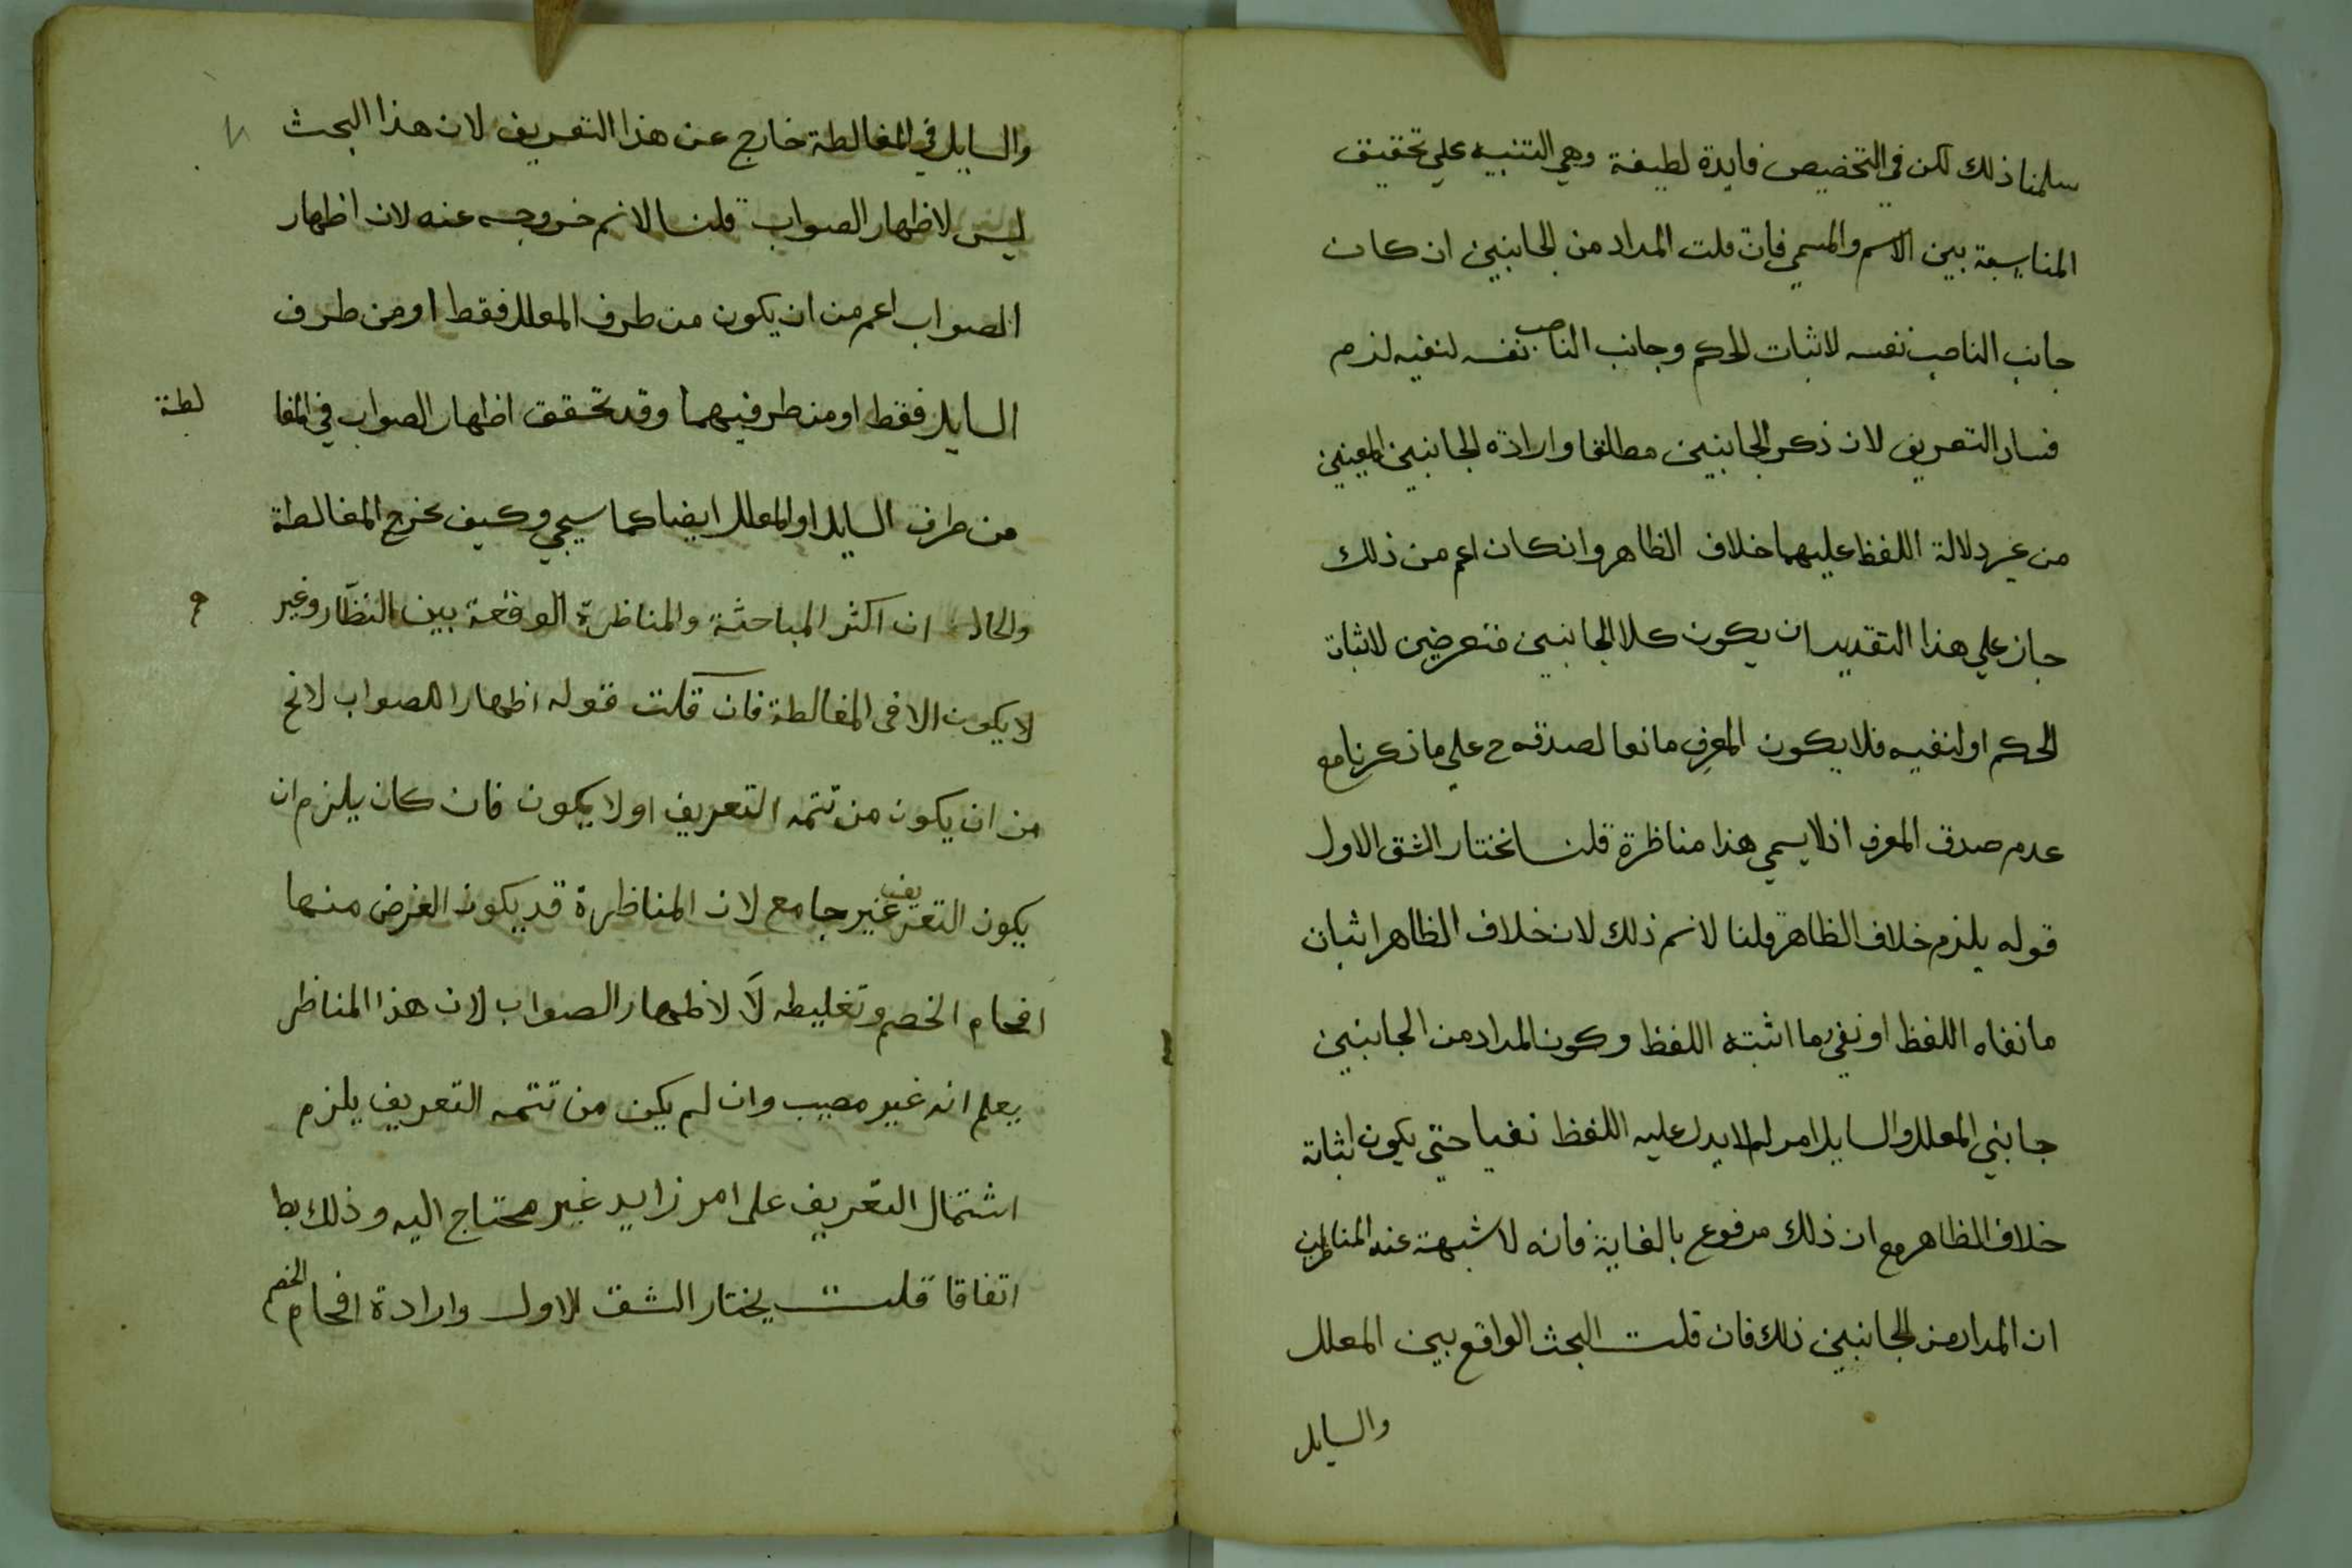 سلمنا ذلك لكن في التخصيص فايدة لطيفة وهي التنبيه علي تحقيق
المناسبة بين الاسم والمسمي فان قلت المراد من الجانبين ان كان
جانب الناصب نفسه لاثبات الحكم وجانب الناصب نفسه لنفيه لزم
فساد التعريف لان ذكر الجانبين مطلقا وارادة الجانبين المعينين
من غير دلالة اللفظ عليهما خلاف الظاهر وان كان اعم من ذلك
جاز علي هذا التقدير ان يكون كلا الجانبين متعرضين لاثبات
الحكم او لنفيه فلا يكون المعرف مانعا لصدقه ح علي ما ذكرنا مع
عدم صدق المعرف اذ لا يسمي هذا مناظرة قلنا نختار الشق الاول
قوله يلزم خلاف الظاهر قلنا لا نم ذلك لان خلاف الظاهر اثبات
ما نفاه اللفظ او نفي ما اثبته اللفظ وكون المراد من الجانبين
جانبي المعلل والسايل امر لا يدل عليه اللفظ نفيا حتي يكون اثباته
خلاف الظاهر مع ان ذلك مدفوع بالغاية فانه لا شبهة عند المناظرين
ان المراد من الجانبين ذلك فان قلت البحث الواقع بين المعلل
والسايل
والسايل في المغالطة خارج عن هذا التعريف لان هذا البحث
ليس لاظهار الصواب قلنا لا نم خروجه عنه لان اظهار
الصواب اعم من ان يكون من طرف المعلل فقط او من طرف
السايل فقط او من طرفيهما وقد تحقق اظهار الصواب في المغا
لطة
من طرف السايل او المعلل ايضا كما سيجي وكيف يخرج المغالطة
والحال ان اكثر المباحثة والمناظرة الوقعة بين النظّار وغير
م
لا يكون الا في المغالطة فان قلت قوله اظهارا للصواب لا يخ
من ان يكون من تتمه التعريف او لا يكون فان كان يلزم ان
يكون التعريف غير جامع لان المناظرة قد يكون الغرض منها
افحام الخصم وتغليطه لا لاظهار الصواب لان هذا المناظر
يعلم انه غير مصيب وان لم يكن من تتمه التعريف يلزم
اشتمال التعريف على امر زايد غير محتاج اليه وذلك بط
اتفاقا قلت يختار الشق الاول وارادة افحام الخصم